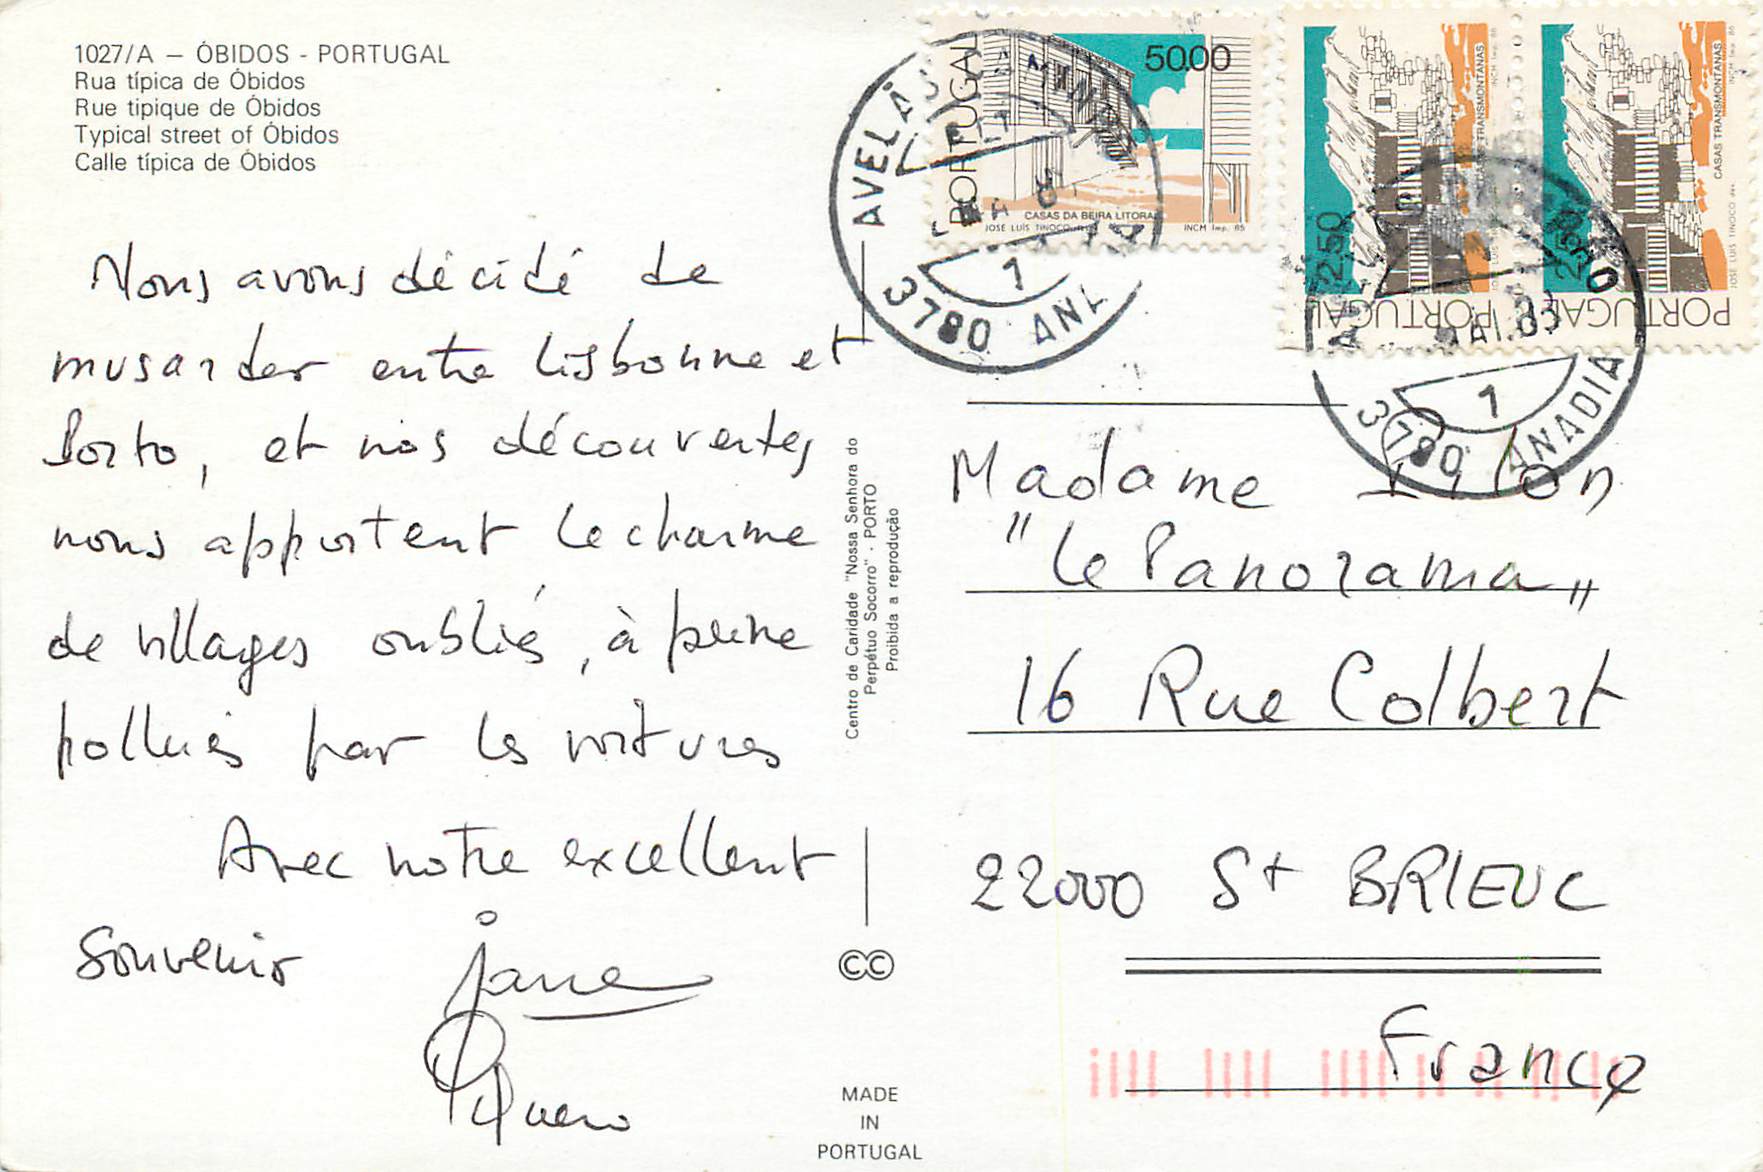 1027/A — ÓBIDOS - PORTUGAL
Rua típica de Óbidos
Rue tipique de Óbidos
Typical street of Óbidos
Calle típica de Óbidos
Nous avons décidé de
musarder entre Lisbonne et
Porto, et nos découvertes
nous apportent le charme
de villages oubliés, à peine
pollués par les voitures
Avec notre excellent
Souvenir
Centro de Caridade "Nossa Senhora do
Perpétuo Socorro" - PORTO
Proibida a reprodução
CC
MADE
IN
PORTUGAL
PORTUGAL
50.00
CASAS DA BEIRA LITORAL
JOSÉ LUÍS TINOCO
INCM Imp. 85
3780
1
PORTUGAL
2.50
CASAS TRANSMONTANAS
INCM Imp. 85
PORTUGAL
2.50
CASAS TRANSMONTANAS
JOSÉ LUÍS TINOCO des.
INCM Imp. 85
1
3780 ANADIA
Madame
"Le Panorama"
16 Rue Colbert
22000 St BRIEUC
France